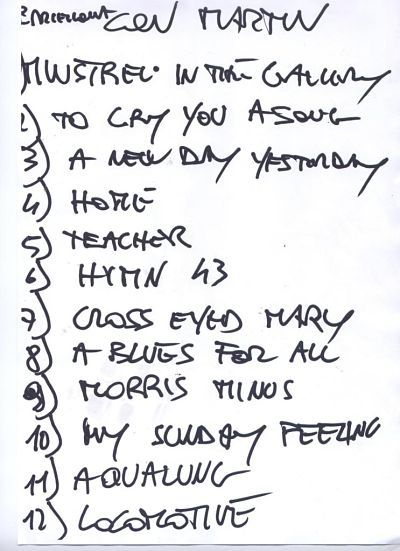 CON MARTIN
MINSTREL IN THE GALLERY
2) TO CRY YOU A SONG
3) A NEW DAY YESTERDAY
4) HOME
5) TEACHER
6) HYMN 43
7) CROSS EYED MARY
8) A BLUES FOR ALL
9) MORRIS MINUS
10) MY SUNDAY FEELING
11) AQUALUNG
12) LOCOMOTIVE